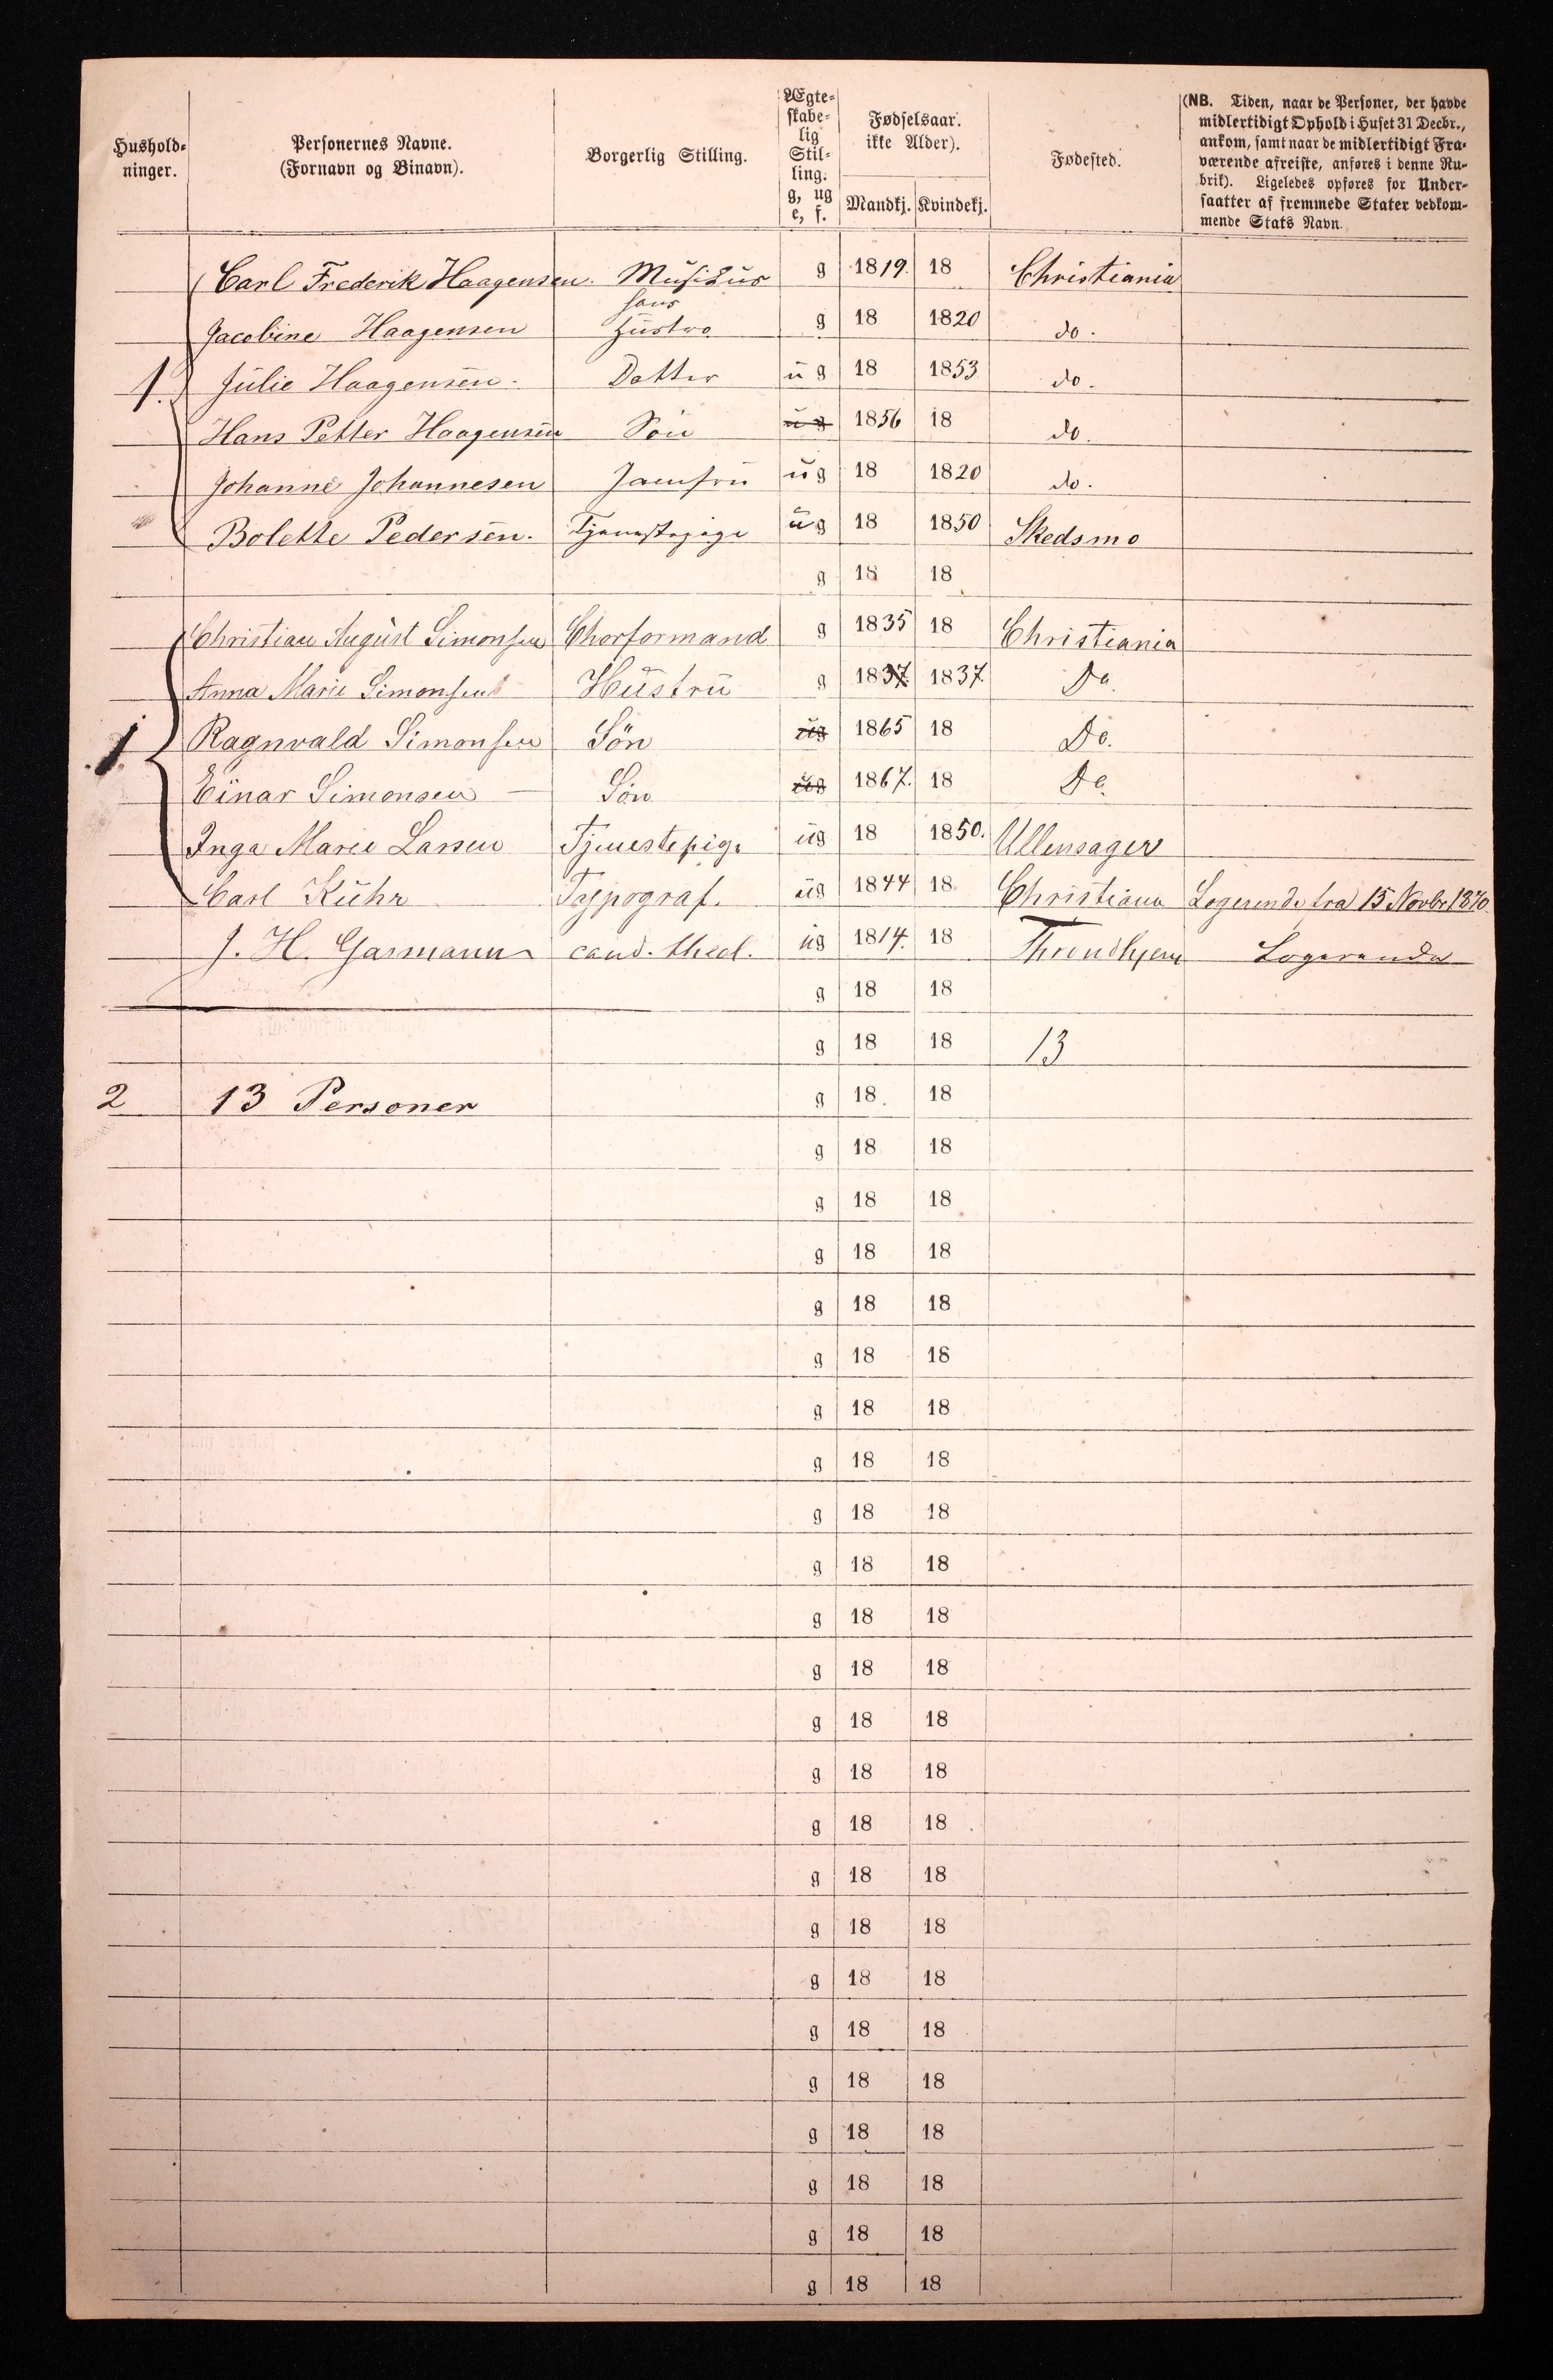 Hushold-
ninger.
Personernes Navne.
(Fornavn og Binavn).
Borgerlig Stilling.
Ægte-
skabe-
lig
Stil-
ling.
g, ug
e, f.
Fødselsaar.
ikke Alder).
Mandkj. Kvindekj.
Fødested.
(NB. Tiden, naar de Personer, der havde
midlertidigt Ophold i Huset 31 Decbr.,
ankom, samt naar de midlertidigt Fra-
værende afreiste, anføres i denne Ru-
brik). Ligeledes opføres for Under-
saatter af fremmede Stater vedkom-
mende Stats Navn.
Carl Frederik Haagensen. Musikus g 1819. 18 Christiania
Jacobine Haagensen hans Hustro g 18 1820 do.
1. Julie Haagensen. Datter ug 18 1853 do.
Hans Petter Haagensen Søn ug 1856 18 do.
Johanne Johannesen Jomfru ug 18 1820 do.
Bolette Pedersen. Tjenestepige ug 18 1850 Skedsmo
g 18 18
Christian August Simonsen Chorformand g 1835 18 Christiania
Anna Marie Simonsen Hustru g 1837 1837. Do.
1 Ragnvald Simonsen Sön ug 1865 18 Do.
Einar Simonsen — Sön ug 1867. 18 Do.
Inga Marie Larsen Tjenestepige ug 18 1850. Ullensager
Carl Kuhr Typograf. ug 1844 18 Christiania Logerende fra 15 Novbr 1870.
J. H. Garmann cand. theol. ug 1814. 18 Throndhjem Logerende
g 18 18
g 18 18 13
2 13 Personer g 18 18
g 18 18
g 18 18
g 18 18
g 18 18
g 18 18
g 18 18
g 18 18
g 18 18
g 18 18
g 18 18
g 18 18
g 18 18
g 18 18
g 18 18
g 18 18
g 18 18
g 18 18
g 18 18
g 18 18
g 18 18
g 18 18
g 18 18
g 18 18